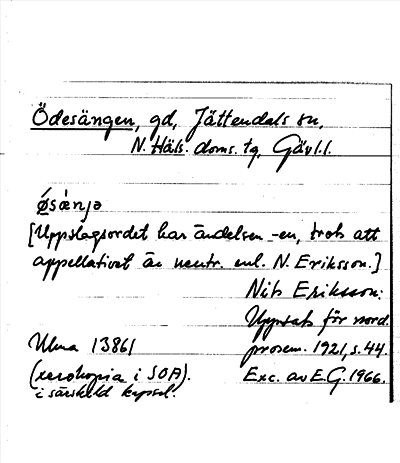 Ödesängen, gd, Jättendals sn,
N. Häls. doms. tg, Gävl.l.
ǿsæ̀njə
[Uppslagsordet har ändelsen -en, trots att
appellativet är neutr. enl. N. Eriksson.]
Nils Eriksson:
Uppsats för nord.
Ulma 13861 prosem. 1921, s. 44.
(xerokopia i SOA). Exc. av E.G. 1966.
i särskild kapsel.